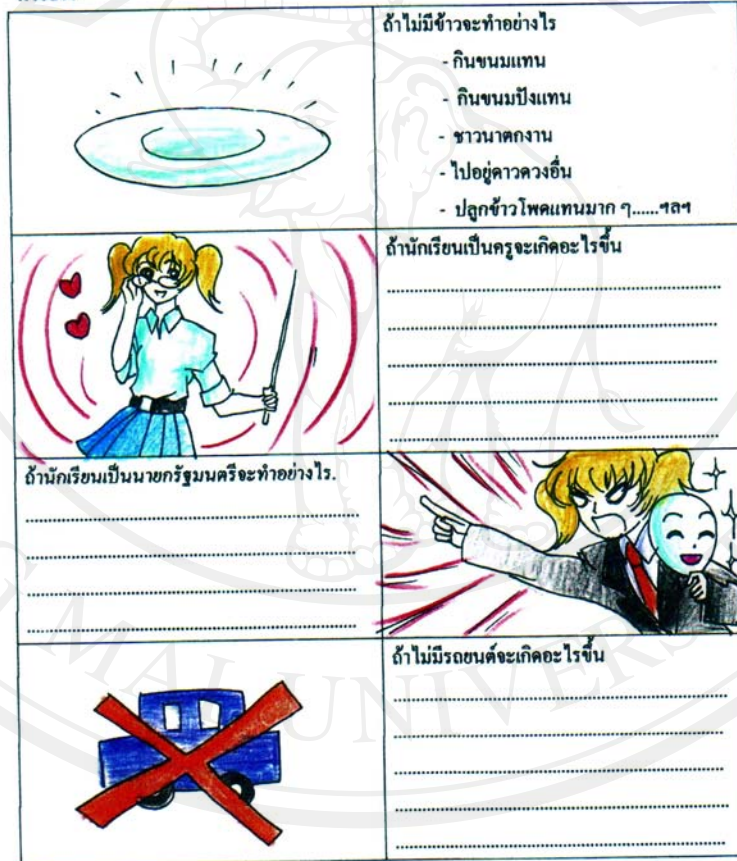 ถ้าไม่มีข้าวจะทำอย่างไร
- กินขนมแทน
- กินขนมปังแทน
- ชาวนาตกงาน
- ไปอยู่ดาวดวงอื่น
- ปลูกข้าวโพดแทนมาก ๆ......ฯลฯ
ถ้านักเรียนเป็นครูจะเกิดอะไรขึ้น
ถ้านักเรียนเป็นนายกรัฐมนตรีจะทำอย่างไร.
ถ้าไม่มีรถยนต์จะเกิดอะไรขึ้น